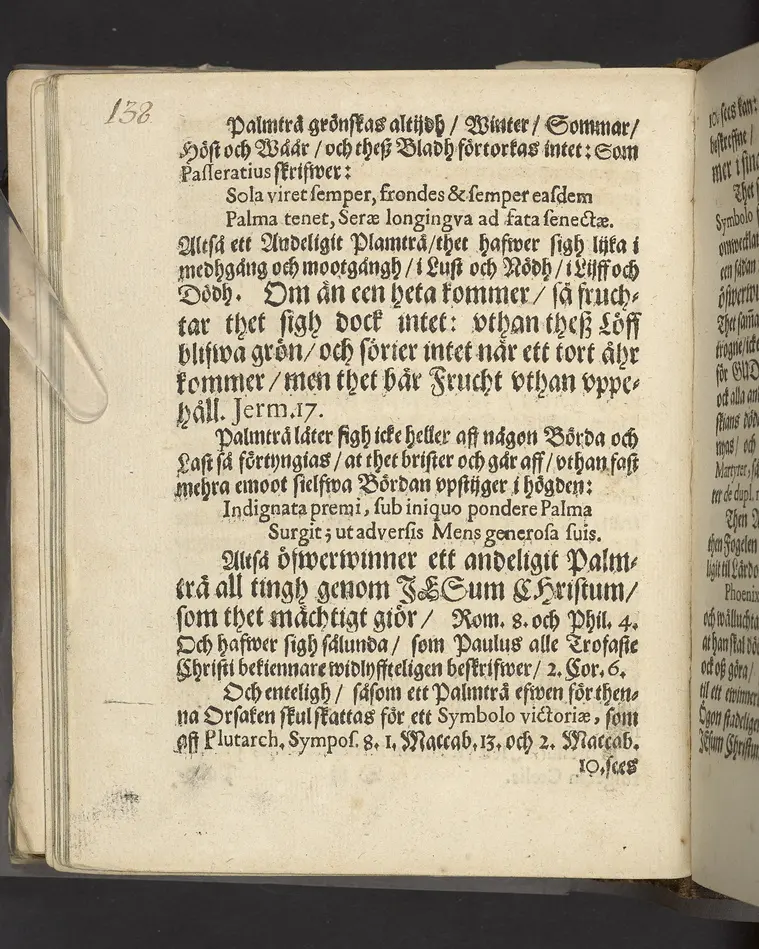 138
Palmträ grönskas altijdh / Winter / Sommar /
Höst och Wåår / och theß Bladh förtorkas intet: Som
Passeratius skrifwer:
Sola viret semper, frondes & semper easdem
Palma tenet, Seræ longingva ad fata senectæ.
Altså ett Andeligit Plamträ / thet hafwer sigh lijka i
medhgång och mootgångh / i Lust och Nödh / i Lijff och
Dödh. Om än een heta kommer / så fruch-
tar thet sigh dock intet: vthan theß Löff
blifwa grön / och sörier intet när ett tort åhr
kommer / men thet bär Frucht vthan vppe-
håll. Jerm. 17.
Palmträ låter sigh icke heller aff någon Börda och
Last så förtyngias / at thet brister och går aff / vthan fast
mehra emoot sielfwa Bördan vpstijger i högden:
Indignata premi, sub iniquo pondere Palma
Surgit; ut adversis Mens generosa suis.
Altså öfwerwinner ett andeligit Palm-
trä all tingh genom JESum CHristum /
som thet mächtigt giör / Rom. 8. och Phil. 4.
Och hafwer sigh sålunda / som Paulus alle Trofaste
Christi bekiennare widlyffteligen beskrifwer / 2. Cor. 6.
Och enteligh / såsom ett Palmträ efwen för then-
na Orsaken skul skattas för ett Symbolo victoriæ, som
aff Plutarch. Sympos. 8. 1. Maccab. 13. och 2. Maccab.
10. sees
10. sees kan:
mer i sina
Thet s
Symbolo
een sådan
öfwerwi
Thet samm
trogne / icke
för GUD
ock alla an
skians död
mas / och
Martyrer, så
ter de dupl. m
Then A
then Fogelen
ligit til Lärdo
Phoenix
och wälluchta
at han skal dö
ock oß göra /
til ett ewinner
Ögon stadelige
JEsum Christum